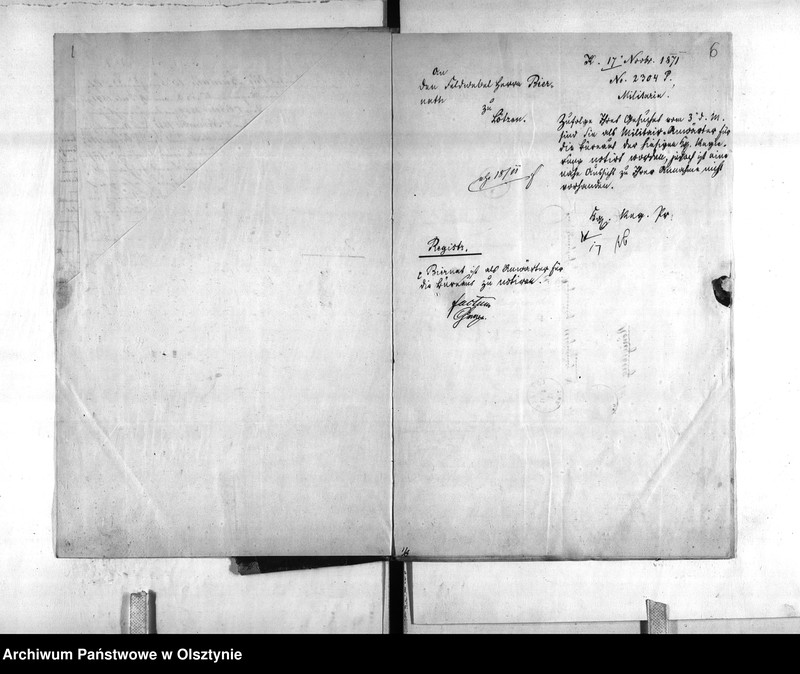 1
6
An
den Feldwebel Herrn Bier-
nath
zu
Lötzen.
K. 17 Novbr. 1871
No. 2304 P.
Militaria.
Zufolge Ihres Gesuches vom 3. d. M.
sind Sie als Militair-Anwärter für
die Büreaus der hiesigen Kg. Regie-
rung notirt worden, jedoch ist eine
nahe Aussicht zu Ihrer Annahme nicht
vorhanden.
18/11
Kgl. Reg. Pr.
17
Registr.
Biernat ist als Anwärter für
die Büreaus zu notiren.
factum
Archiwum Państwowe w Olsztynie